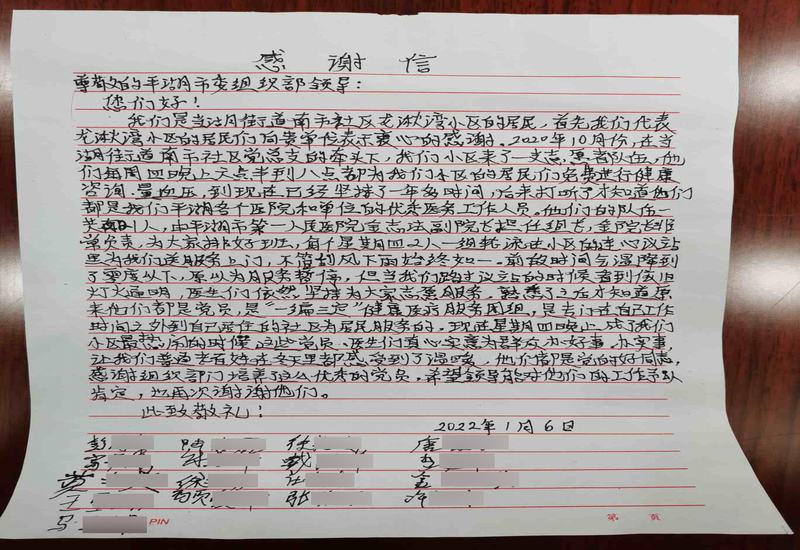 感谢信
尊敬的平湖市委组织部领导：
您们好！
我们是当湖街道南市社区龙湫湾小区的居民，首先我们代表
龙湫湾小区的居民们向贵单位表示衷心的感谢。2020年10月份，在当
湖街道南市社区党总支的牵头下，我们小区来了一支志愿者队伍，他
们每周四晚上六点半到八点都为我们小区的居民们免费进行健康
咨询、量血压，到现在已经坚持了一年多时间，后来打听了才知道他们
都是我们平湖各个医院和单位的优秀医务工作人员。他们的队伍一
共有21人，由平湖市第一人民医院金志法副院长担任组长，金院长非
常负责，为大家排好班，每个星期四2人一组轮流进小区的连心议站
里为我们送服务上门，不管刮风下雨始终如一。前段时间气温降到
了零度以下，原以为服务暂停，但当我们路过议站的时候看到依旧
灯火通明，医生们依然坚持为大家志愿服务。熟悉了之后才知道原
来他们都是党员，是“三编三定”健康医疗服务团组，是专门在自己工作
时间之外到自己居住的社区为居民服务的。现在星期四晚上成了我们
小区最热闹的时候，这些党员、医生们真心实意为群众办好事、办实事，
让我们普通老百姓在冬天里都感受到了温暖，他们都是党的好同志，
感谢组织部门培养了这么优秀的党员，希望领导能对他们的工作予以
肯定，并再次谢谢他们。
此致敬礼！
2022年1月6日
彭 陆 徐 唐
戴
徐
王 张 许
马
PIN 第 页